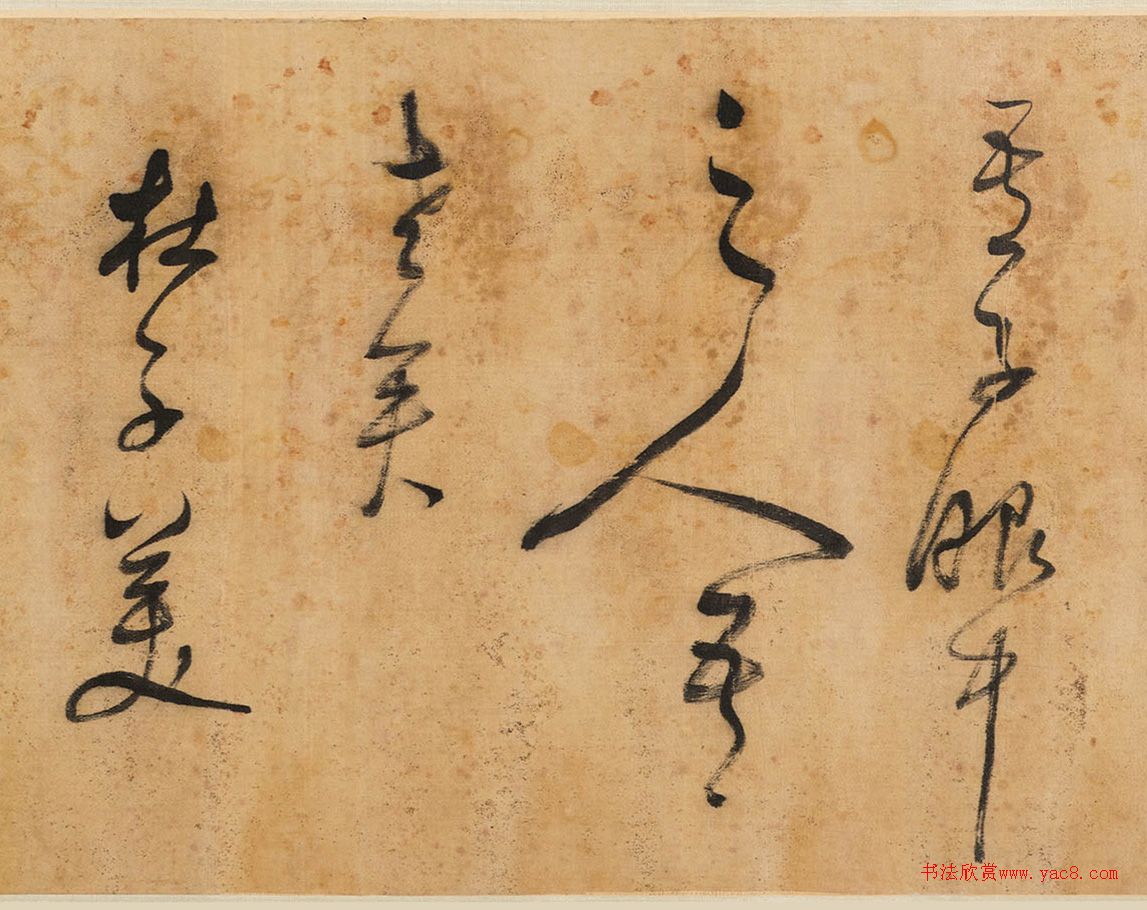 吾子眼中
之人吾
老矣
杜子美
书法欣赏www.yac8.com